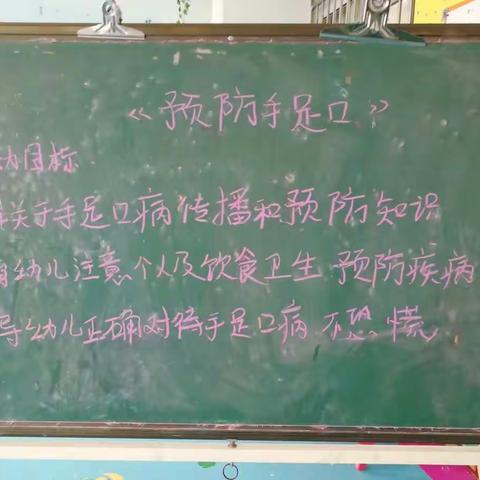 《预防手足口》
动目标
关于手足口病传播和预防知识
幼儿注意个人及饮食卫生 预防疾病
导幼儿正确对待手足口病 不恐慌